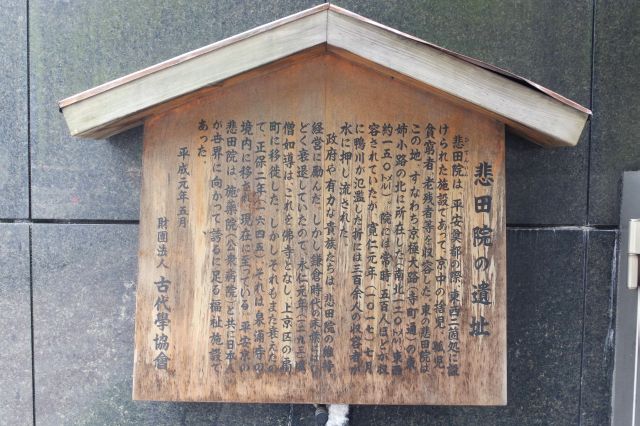 悲田院の遺址
悲田院は、平安奠都の際、東西二箇処に設
けられた施設であって、京中の捨児、孤児
貧窮者、老残者等を収容した。東の悲田院は
この地、すなわち京極大路（寺町通）の東
姉小路の北に所在した。南北一二〇㍍、東西
約一五〇㍍、院には常時、五百人ほどが収
容されていたが、寛仁元年（一〇一七）七月
に鴨川が氾濫した折には三百余人の収容者が
水に押し流された。
政府や有力な貴族たちは、悲田院の維持
経営に励んだ。しかし鎌倉時代の末頃には
どく衰退していたので、永仁元年（一二九三）
僧如導は、これを佛寺となし、上京区の扇
町に移徙した。しかしそれもまた衰えたの
で、正保二年（一六四五）、それは泉涌寺の
境内に移され現在に至っている。平安京の
悲田院は、施薬院（公衆病院）と共に日本人
が世界に向かって誇るに足る福祉施設で
あった。
平成元年五月
財團法人 古代學協會